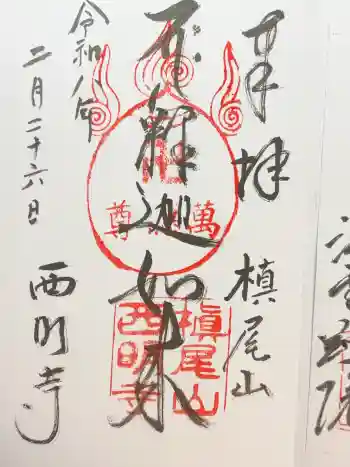 奉拝
槙尾山
釈迦如来
萬
尊
槇尾山
西明寺
令和八年
二月二十六日
西明寺